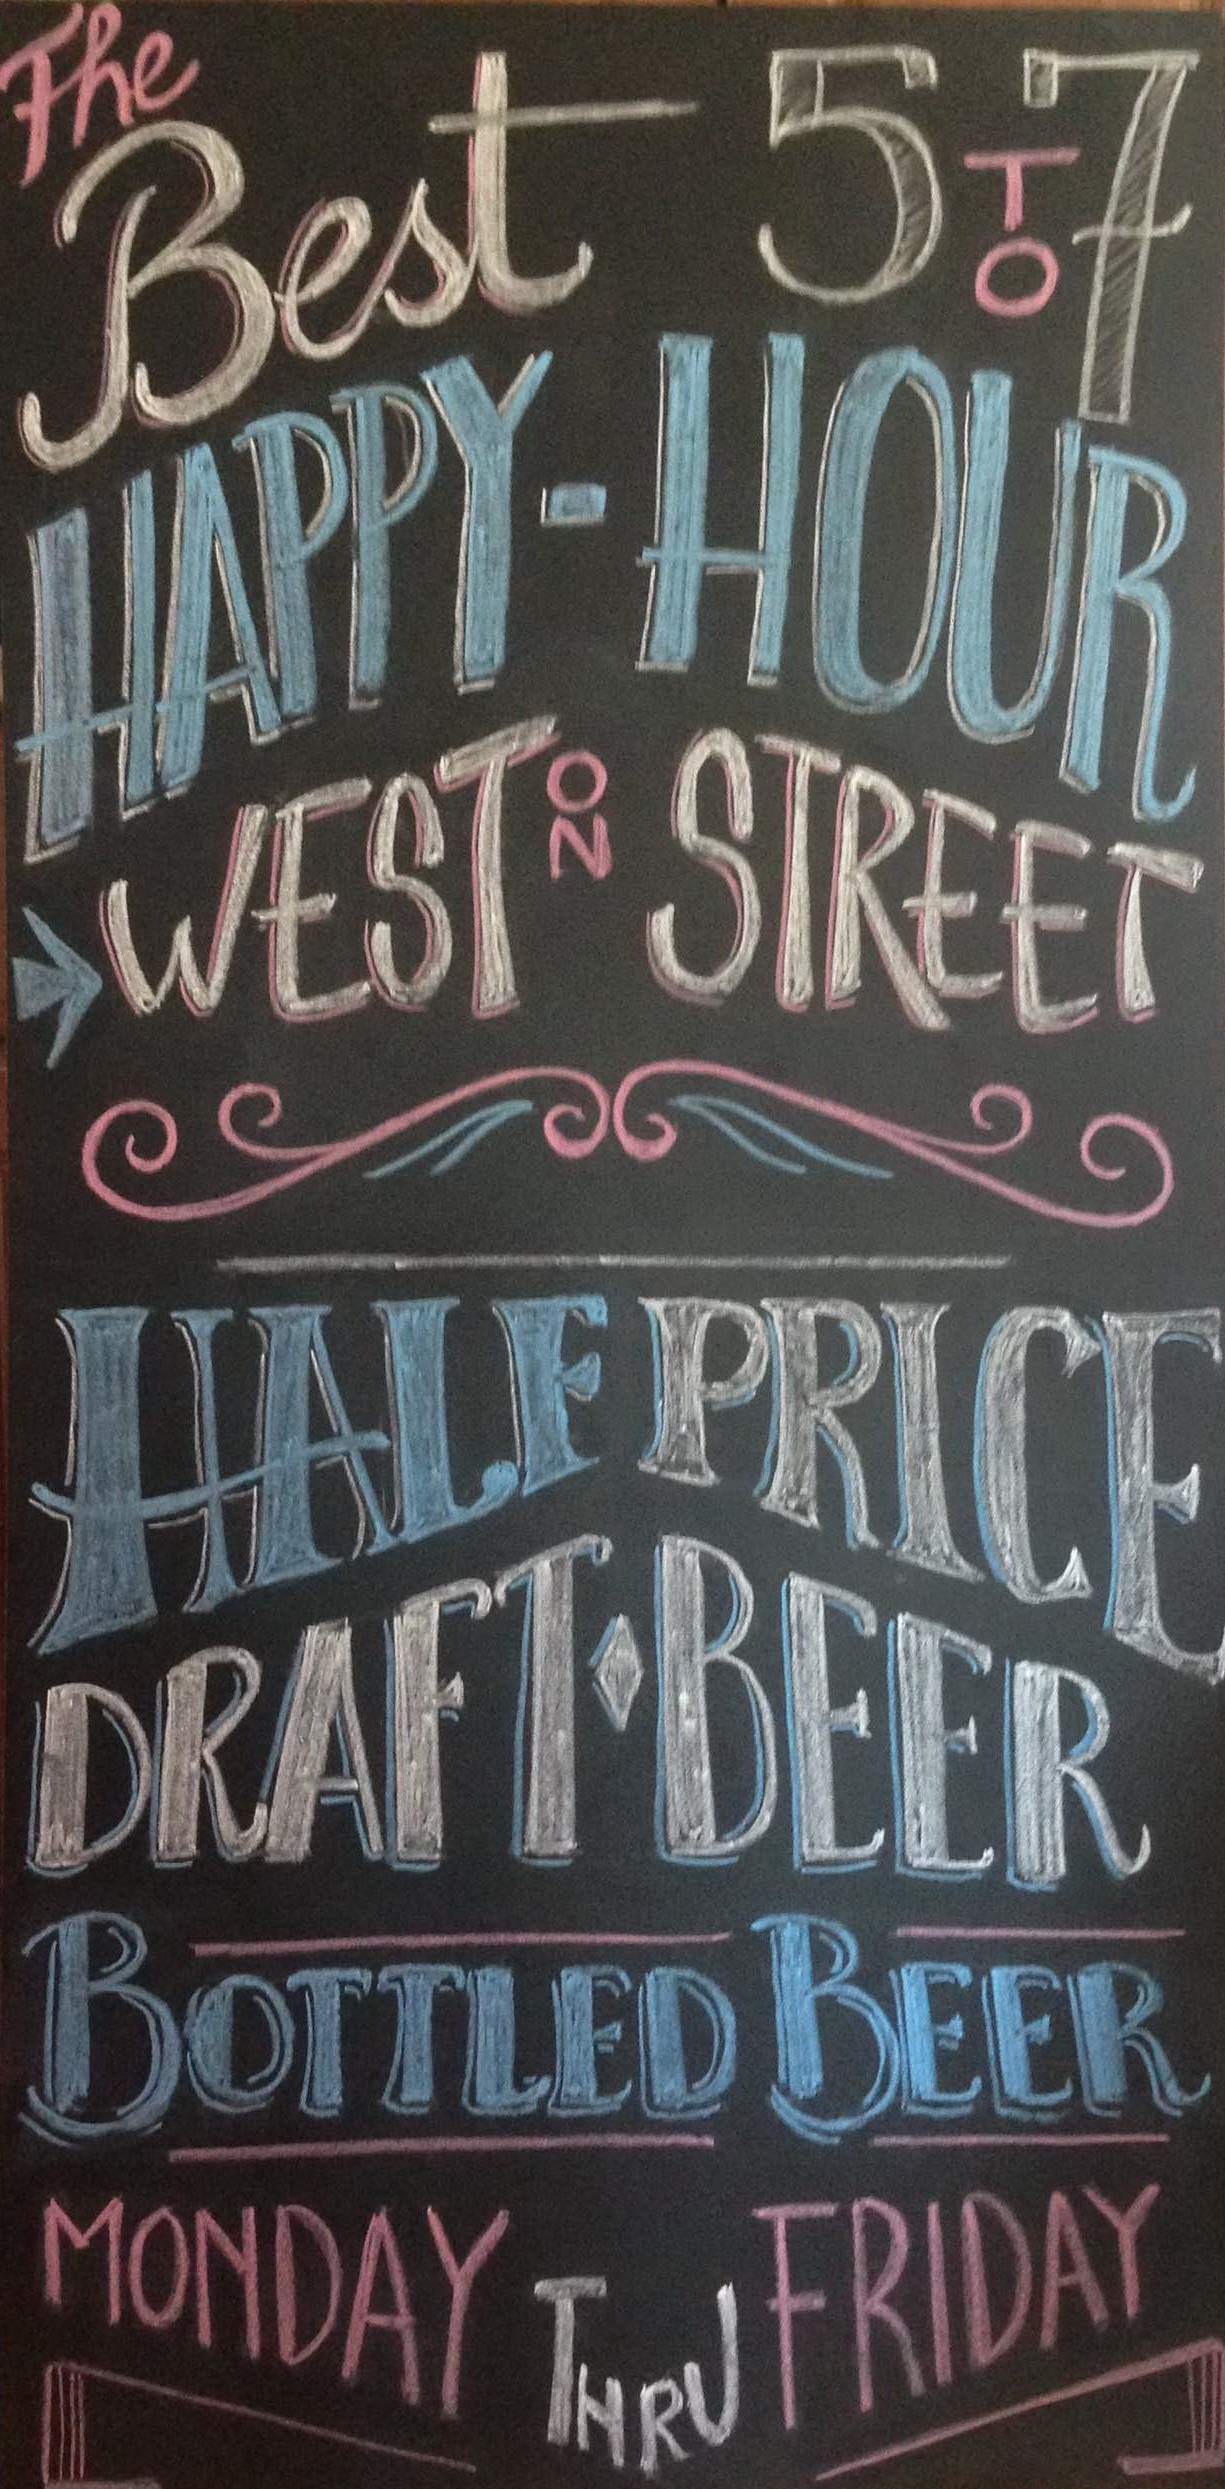 The
Best 5 TO 7
HAPPY-HOUR
WEST ON STREET
HALF PRICE
DRAFT BEER
BOTTLED BEER
MONDAY THRU FRIDAY